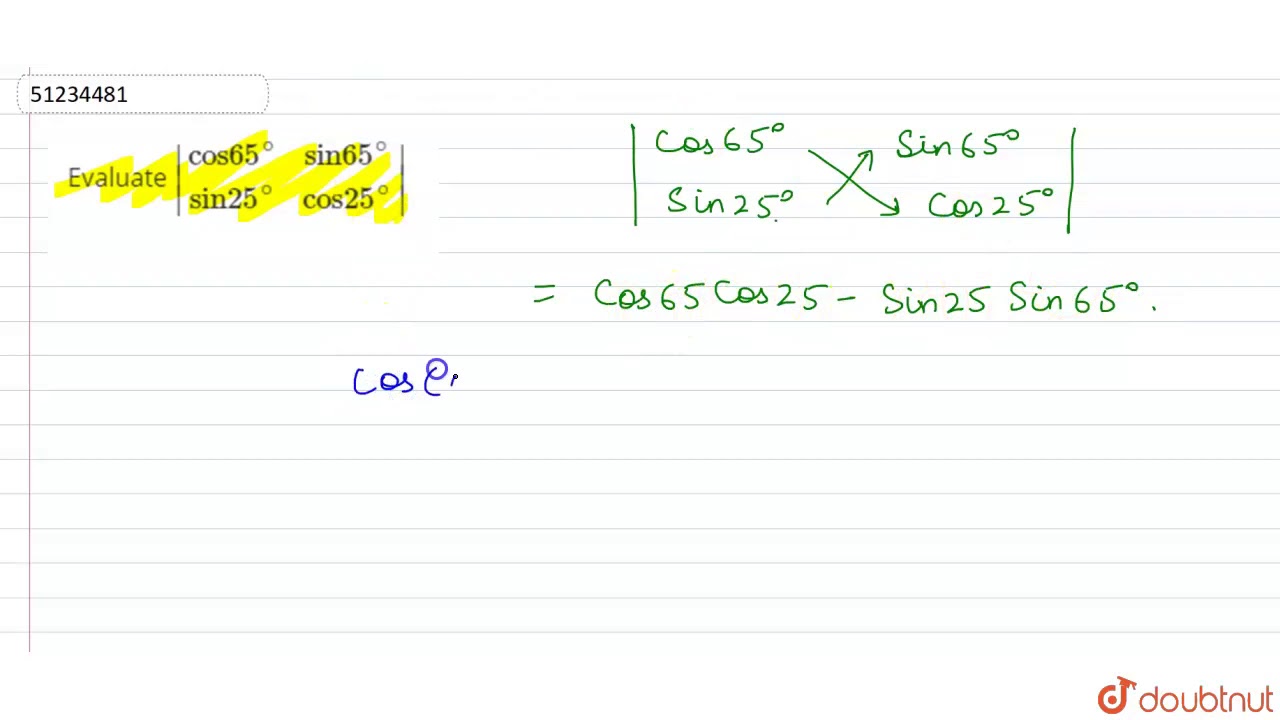 51234481
Evaluate |cos65° sin65°|
|sin25° cos25°|
|Cos65° Sin65°|
|Sin25° Cos25°|
= Cos65 Cos25 - Sin25 Sin65°.
Cos(
doubtnut